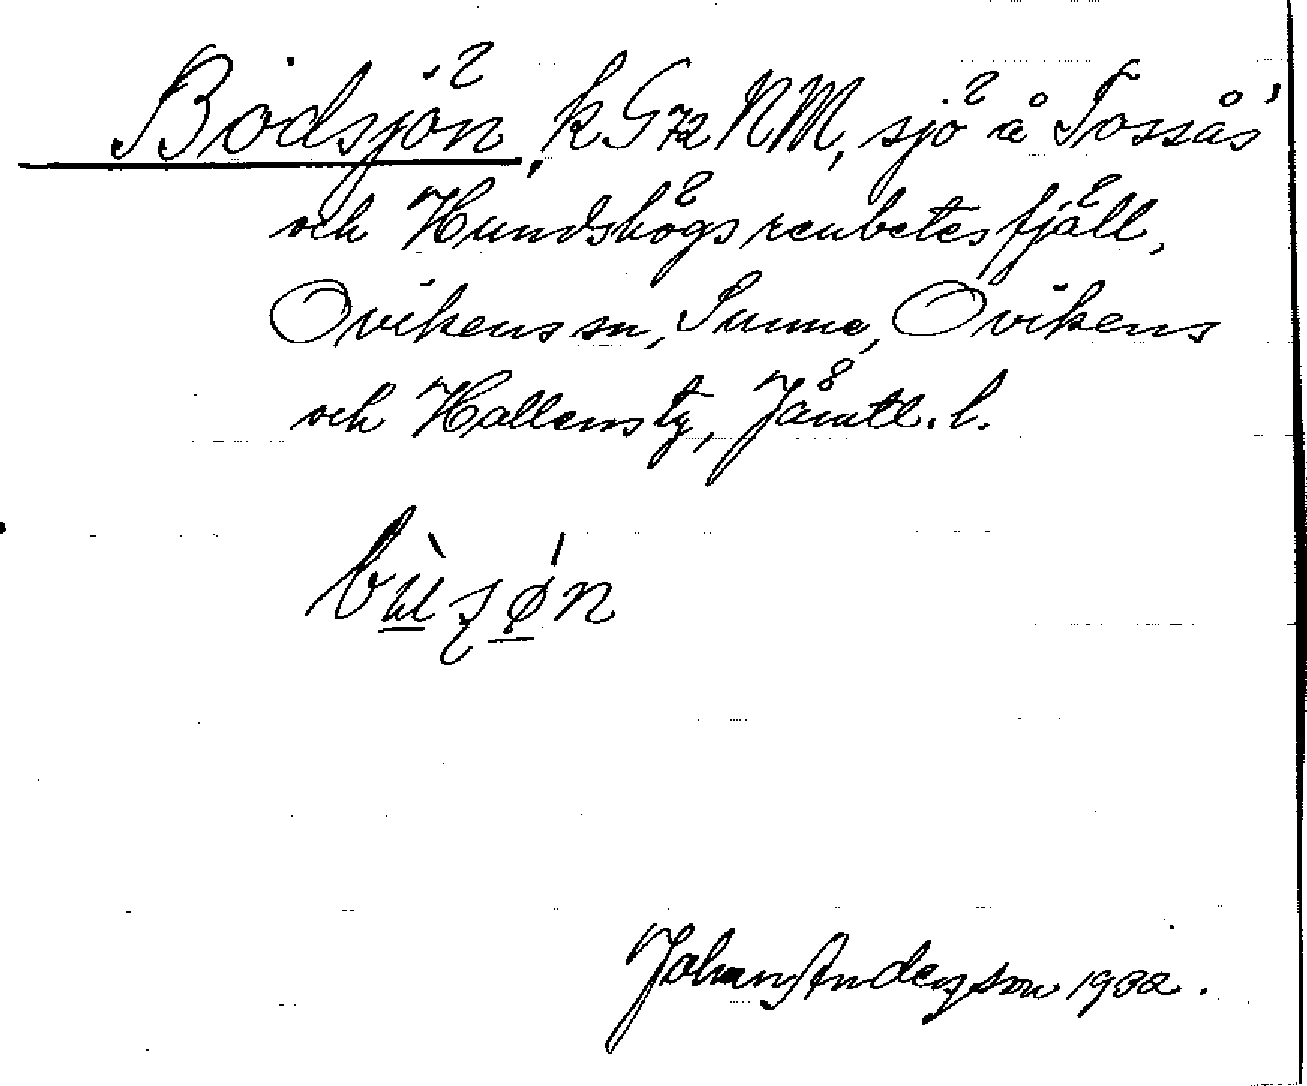 Bodsjön, k G72 NM, sjö å Tossås'
och Hundshögs renbetesfjäll,
Ovikens sn, Sunne, Ovikens
och Hallens tg, Jämtl. l.
bùsǿn
Johan Anderson 1932.